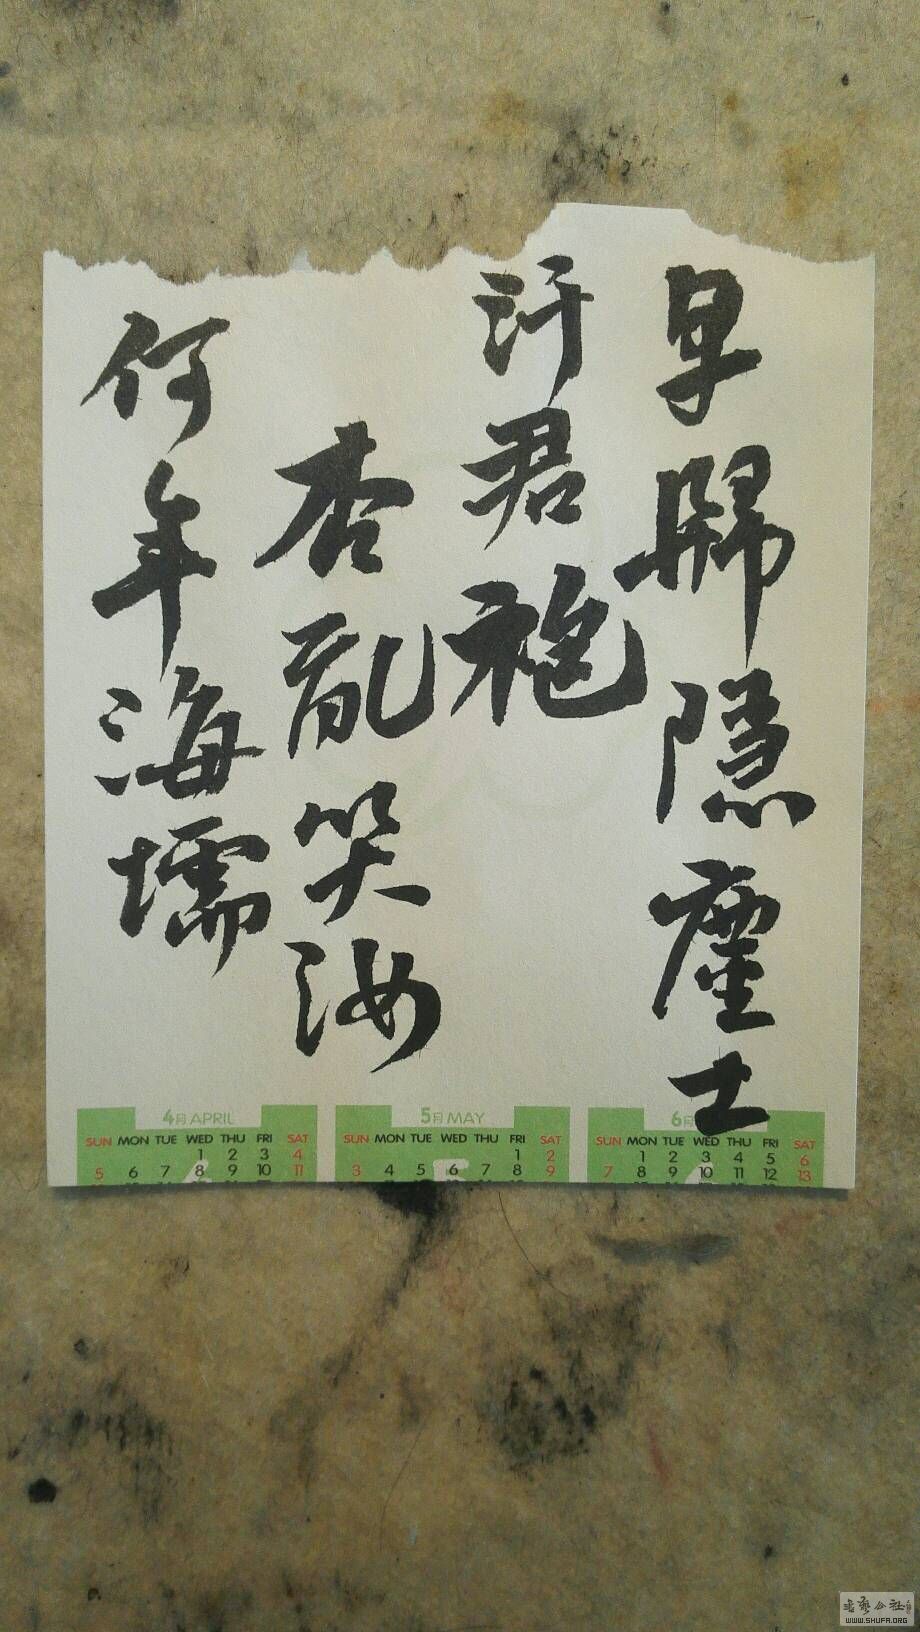 早歸隐塵士
汗君袍
杏亂笑汝
何年海壖
4月 APRIL
SUN MON TUE WED THU FRI SAT
1 2 3 4
5 6 7 8 9 10 11
5月 MAY
SUN MON TUE WED THU FRI SAT
1 2
3 4 5 6 7 8 9
6月
SUN MON TUE WED THU FRI SAT
1 2 3 4 5 6
7 8 9 10 11 12 13
WWW.SHUFA.ORG